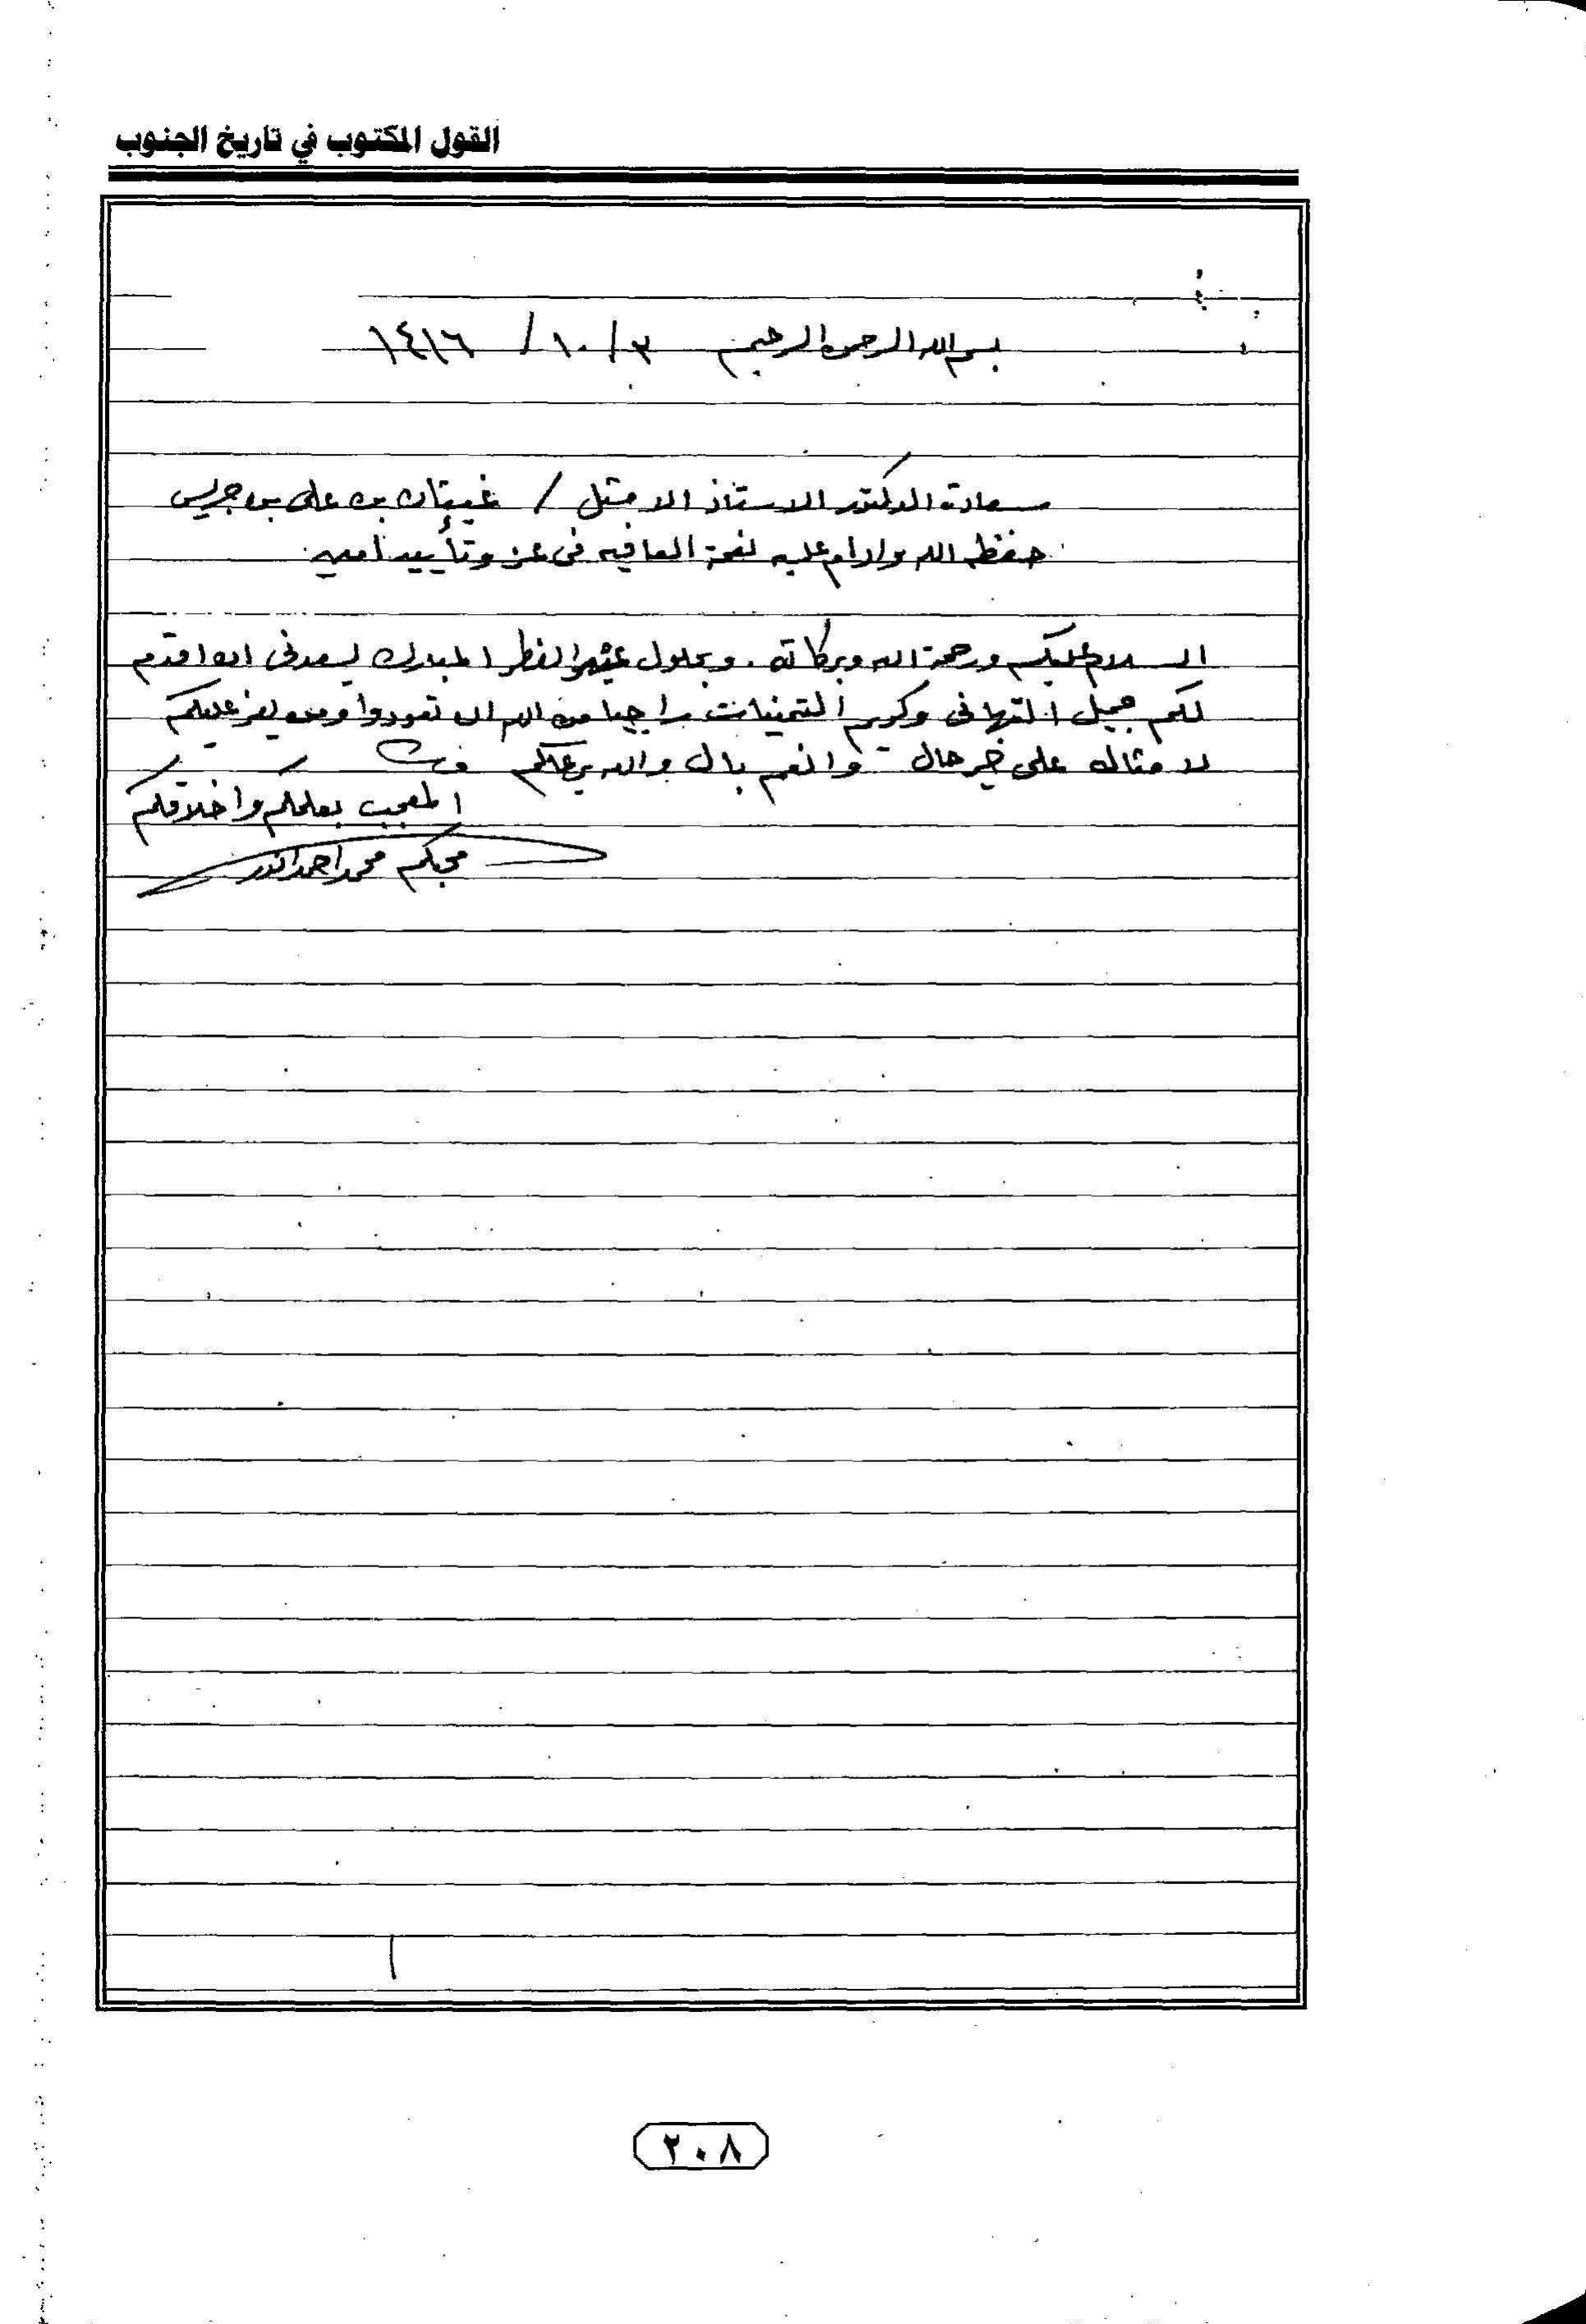 القول المكتوب في تاريخ الجنوب
بسم الله الرحمن الرحيم ٣/ ١٠/ ١٤١٦
سعادة الدكتور الاستاذ الامثل / غيثان بن على بن جريس
حفظه الله وادام عليه نعمة العافيه فى عز وتأييد امين
السلام عليكم ورحمة الله وبركاته. وبحلول الفطر المبارك يسعدنى ان اقدم
لكم جميل التهانى وكريم التمنيات راجيا من الله ان تعودوا ومن يعز عليكم
لامثاله على خير حال وانعم بال والله يرعاكم
المعجب بعلمكم واخلاقكم
محبكم محمد احمد انور
٢٠٨